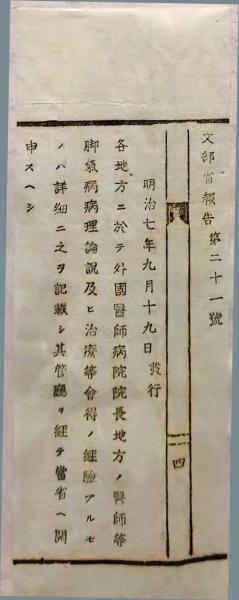 文部省報告 第二十一號
四
明治七年九月十九日 發行
各地方ニ於テ外國醫師病院院長地方ノ醫師等
脚氣病病理論說及ヒ治療等會得ノ經驗アルモ
ノハ詳細ニ之ヲ記載シ其管廳ヲ經テ當省ヘ開
申スヘシ